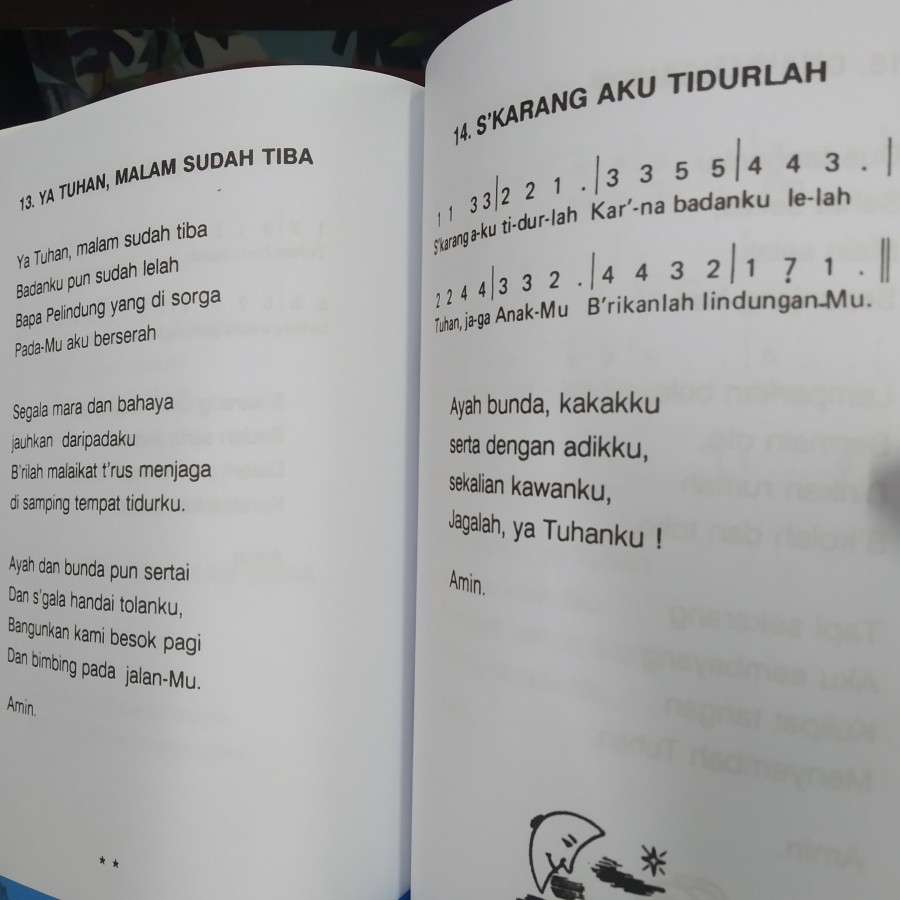 13. YA TUHAN, MALAM SUDAH TIBA
Ya Tuhan, malam sudah tiba
Badanku pun sudah lelah
Bapa Pelindung yang di sorga
Pada-Mu aku berserah
Segala mara dan bahaya
jauhkan daripadaku
B'rilah malaikat t'rus menjaga
di samping tempat tidurku.
Ayah dan bunda pun sertai
Dan s'gala handai tolanku,
Bangunkan kami besok pagi
Dan bimbing pada jalan-Mu.
Amin.
* *
14. S'KARANG AKU TIDURLAH
1 1 3 3|2 2 1 .|3 3 5 5|4 4 3 .|
S'karang a-ku ti-dur-lah Kar'-na badanku le-lah
2 2 4 4|3 3 2 .|4 4 3 2|1 7̣ 1 .||
Tuhan, ja-ga Anak-Mu B'rikanlah lindungan-Mu.
Ayah bunda, kakakku
serta dengan adikku,
sekalian kawanku,
Jagalah, ya Tuhanku !
Amin.